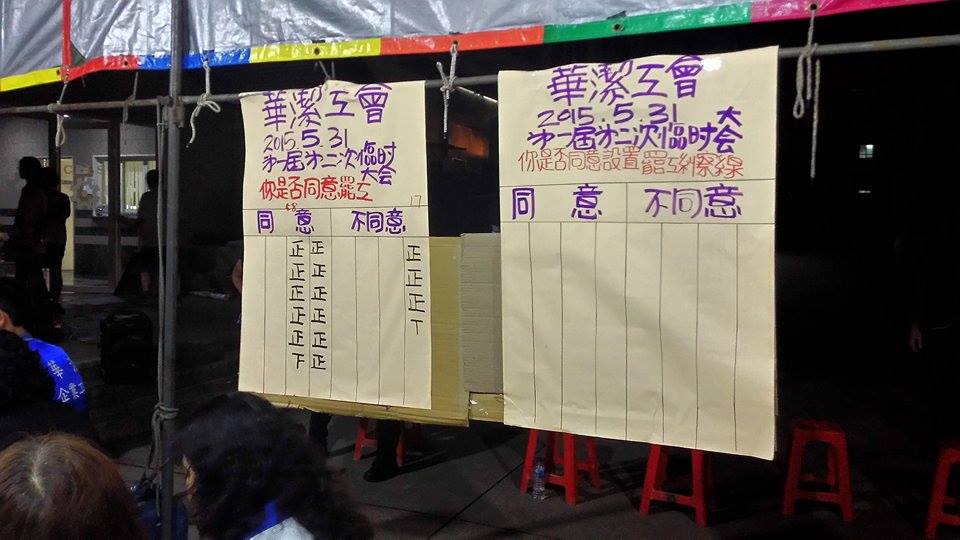 華潔工會
2015.5.31
第一届第二次臨时
大会
你是否同意罷工
58 17
同意 不同意
正 正 正
正 正 正
正 正 正
正 正 丅
正 正
下 正
華潔工會
2015.5.31
第一届第二次臨时大会
你是否同意設置罷工糾察線
同意 不同意
華
企業工